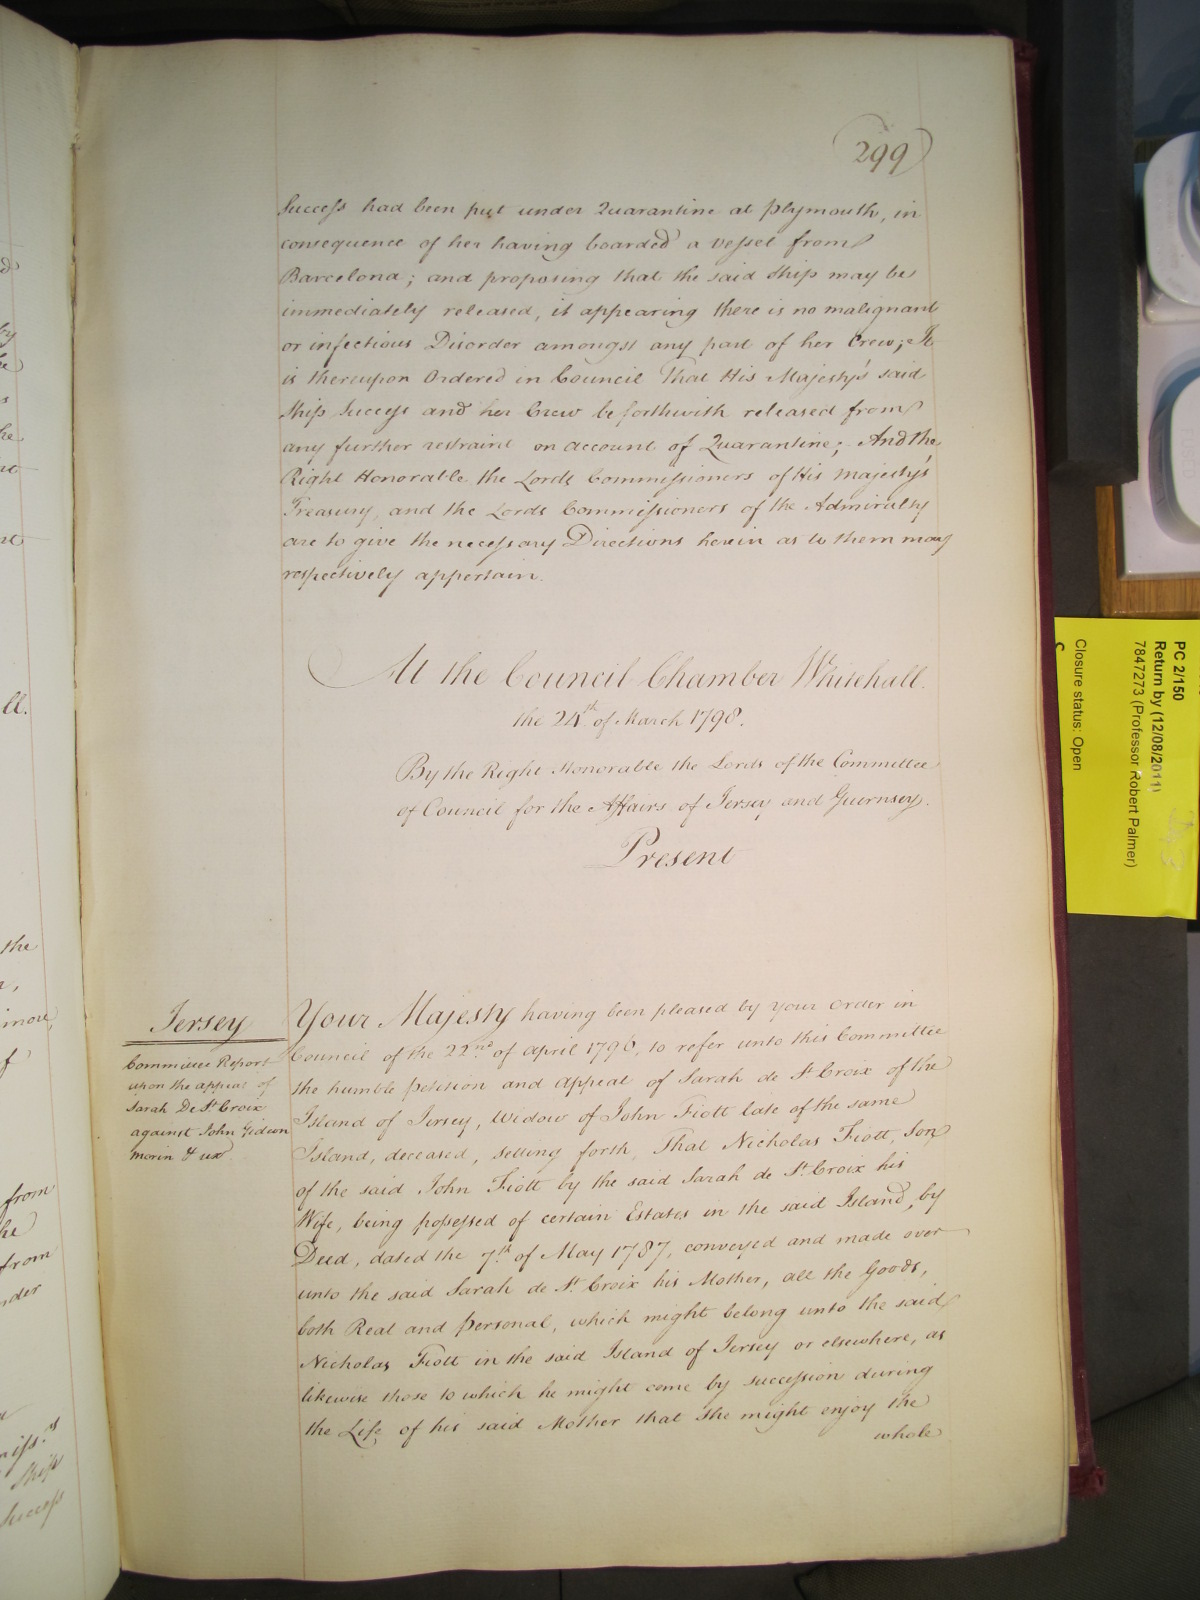 299
Success had been put under Quarantine at Plymouth, in
consequence of her having boarded a vessel from
Barcelona; and proposing that the said Ship may be
immediately released, it appearing there is no malignant
or infectious Disorder amongst any part of her Crew; It
is thereupon Ordered in Council That His Majesty's said
Ship Success and her Crew be forthwith released from
any further restraint on account of Quarantine; And the
Right Honorable the Lords Commissioners of His Majesty's
Treasury, and the Lords Commissioners of the Admiralty
are to give the necessary Directions herein as to them may
respectively appertain.
At the Council Chamber Whitehall.
the 24th of March 1798.
By the Right Honorable the Lords of the Committee
of Council for the Affairs of Jersey and Guernsey.
Present
Jersey
Committee Report
upon the appeal of
Sarah De St. Croix
against John Gideon
Morin & ux
Your Majesty having been pleased by your Order in
Council of the 22nd of April 1796, to refer unto this Committee
the humble petition and appeal of Sarah de St. Croix of the
Island of Jersey, Widow of John Fiott late of the same
Island, deceased, setting forth, That Nicholas Fiott, Son
of the said John Fiott by the said Sarah de St. Croix his
Wife, being possessed of certain Estates in the said Island, by
Deed, dated the 7th of May 1787, conveyed and made over
unto the said Sarah de St. Croix his Mother, all the Goods,
both Real and personal, which might belong unto the said
Nicholas Fiott in the said Island of Jersey or elsewhere, as
likewise those to which he might come by succession during
the Life of his said Mother that she might enjoy the
whole
PC 2/150
Return by (12/08/2011)
7847273 (Professor Robert Palmer)
Closure status: Open
ll.
the
more
of
from
he
from
Ship
Success